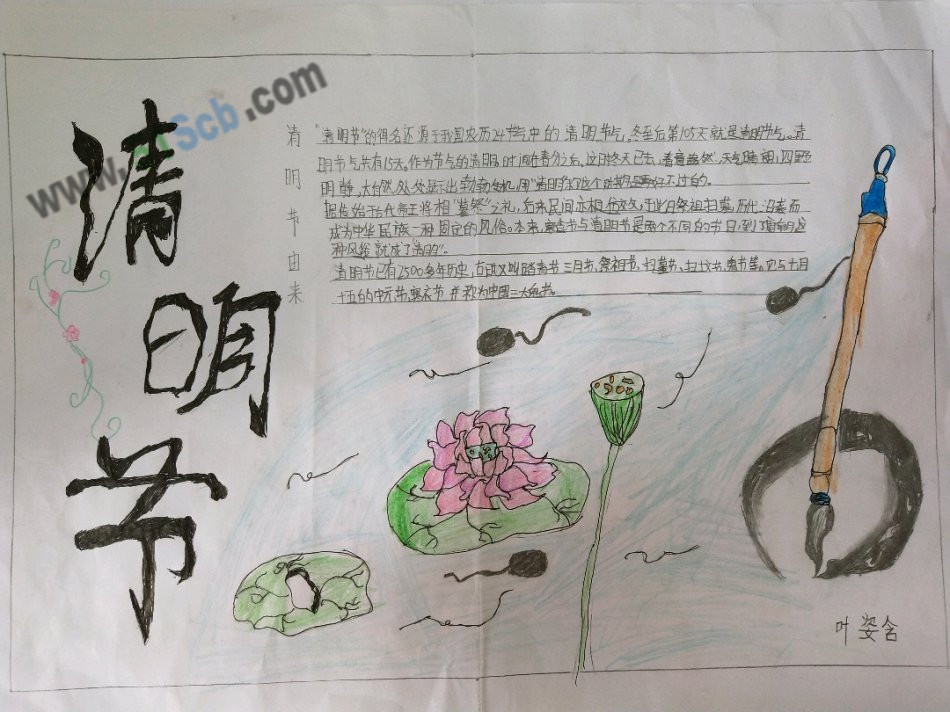 清明节
清明节由来
"清明节"的得名还源于我国农历24节气中的清明节气。冬至后第105天就是清明节气。清
明节气共有15天。作为节气的清明，时间在春分之后。这时冬天已去，春意盎然，天气晴朗，四野
明静，大自然处处显示出勃勃生机。用"清明"称这个时期是再好不过的。
据传始于古代帝王将相"墓祭"之礼，后来民间亦相仿效，于此日祭祖扫墓，历代沿袭而
成为中华民族一种固定的风俗。本来，寒食节与清明节是两个不同的节日，到了唐朝
种风俗就成了"清明"。
清明节已有2500多年历史，古时又叫踏青节、三月节、祭祖节、扫墓节、鬼节等。它与七月
十五的中元节、寒衣节并称为中国三大鬼节。
叶姿含
.com